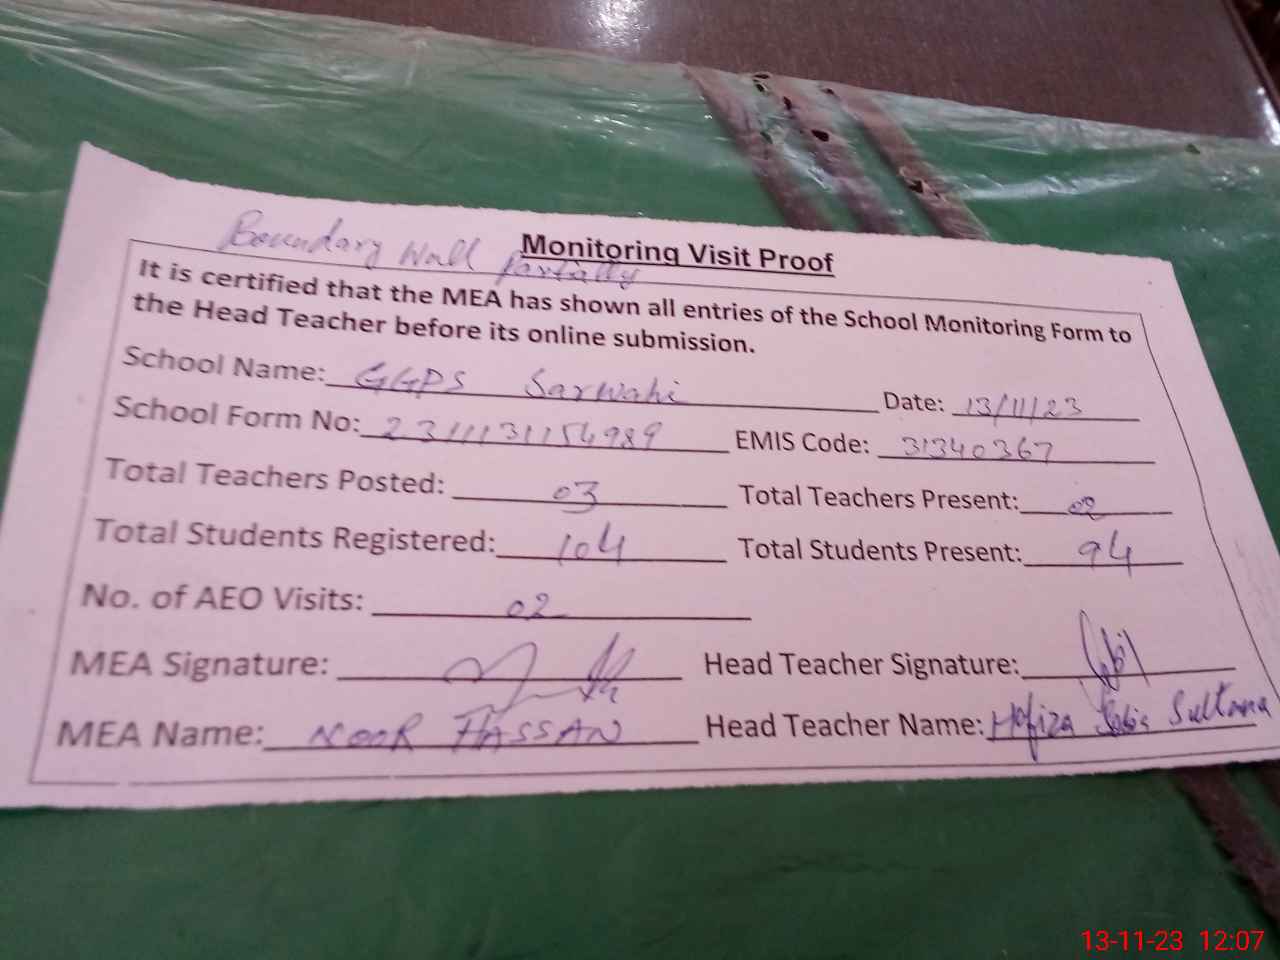 Boundary Wall partially
Monitoring Visit Proof
It is certified that the MEA has shown all entries of the School Monitoring Form to
the Head Teacher before its online submission.
School Name: GGPS Sarwahi Date: 13/11/23
School Form No: 2311131154989 EMIS Code: 31340367
Total Teachers Posted: 03 Total Teachers Present: 02
Total Students Registered: 104 Total Students Present: 94
No. of AEO Visits: 02
MEA Signature: Head Teacher Signature:
MEA Name: NOOR HASSAN Head Teacher Name: Hafiza Sultana
13-11-23 12:07